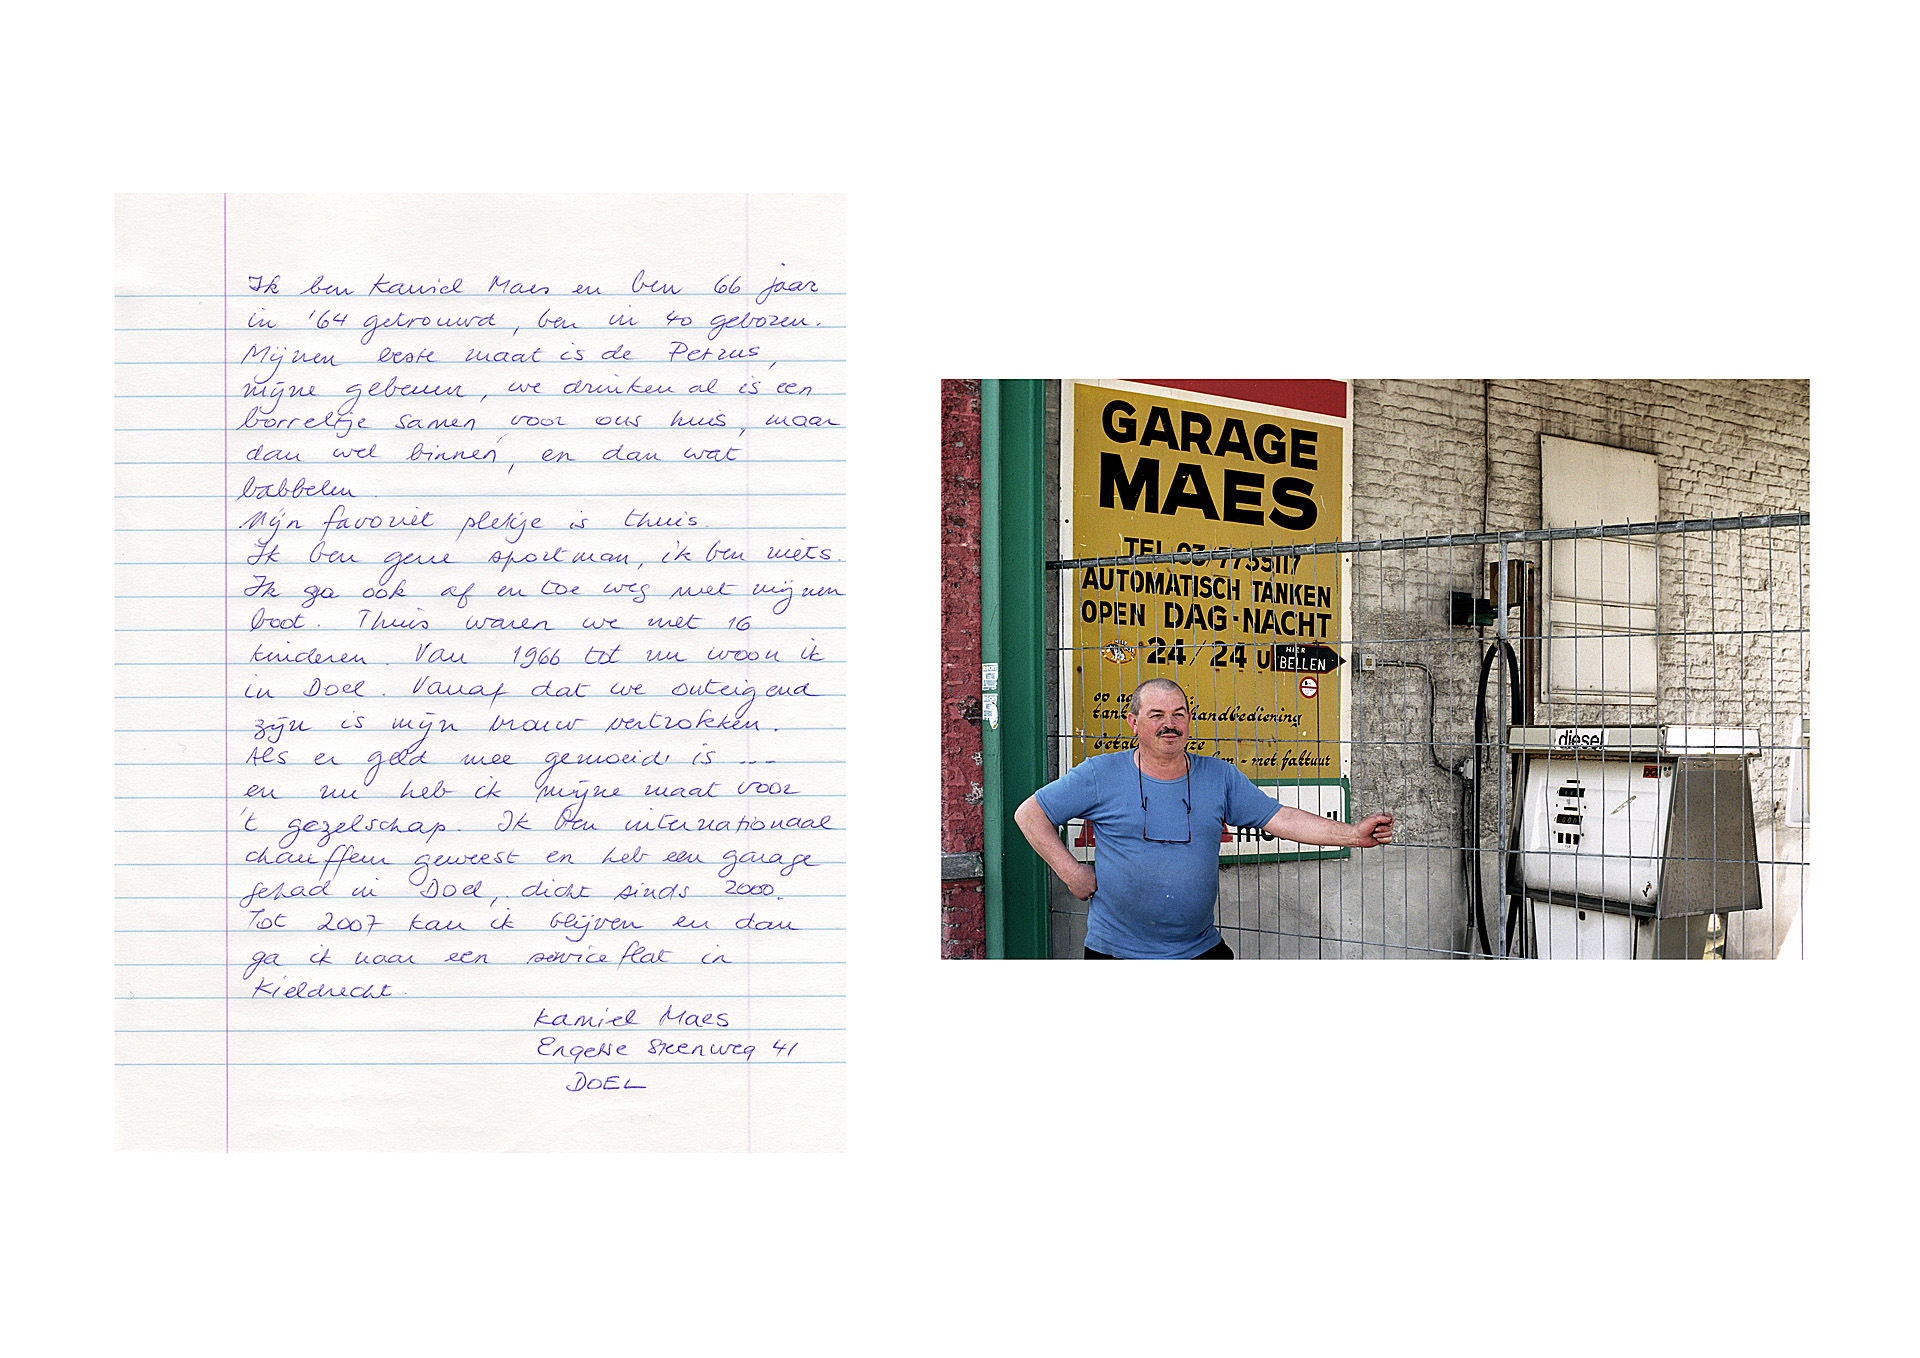 Ik ben Kamiel Maes en ben 66 jaar
in '64 getrouwd, ben in 40 geboren.
Mijnen beste maat is de Petrus,
mijne gebeuur, we drinken al is een
borreltje samen voor ons huis, maar
dan wel binnen, en dan wat
babbelen.
Mijn favoriet plekje is thuis.
Ik ben gene sportman, ik ben niets.
Ik ga ook af en toe weg met mijnen
boot. Thuis waren we met 16
kinderen. Van 1966 tot nu woon ik
in Doel. Vanaf dat we onteigend
zijn is mijn vrouw vertrokken.
Als er geld mee gemoeid is ---
en nu heb ik mijne maat voor
't gezelschap. Ik ben internationaal
chauffeur geweest en heb een garage
gehad in Doel, dicht sinds 2000.
Tot 2007 kan ik blijven en dan
ga ik naar een service flat in
Kieldrecht.
Kamiel Maes
Engelse Steenweg 41
DOEL
GARAGE
MAES
TEL 03/7735117
AUTOMATISCH TANKEN
OPEN DAG-NACHT
24/24 U
HIER
BELLEN
handbediening
- met faktuur
diesel